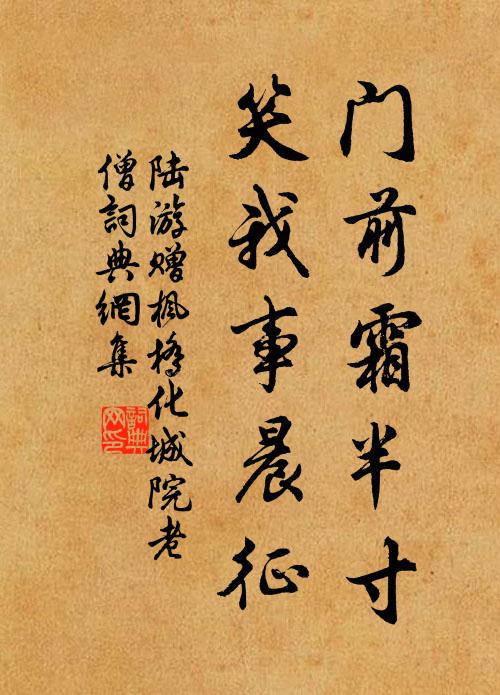 门前霜半寸
笑我事晨征
陆游赠枫桥化城院老
僧詞典網集
詞典网印